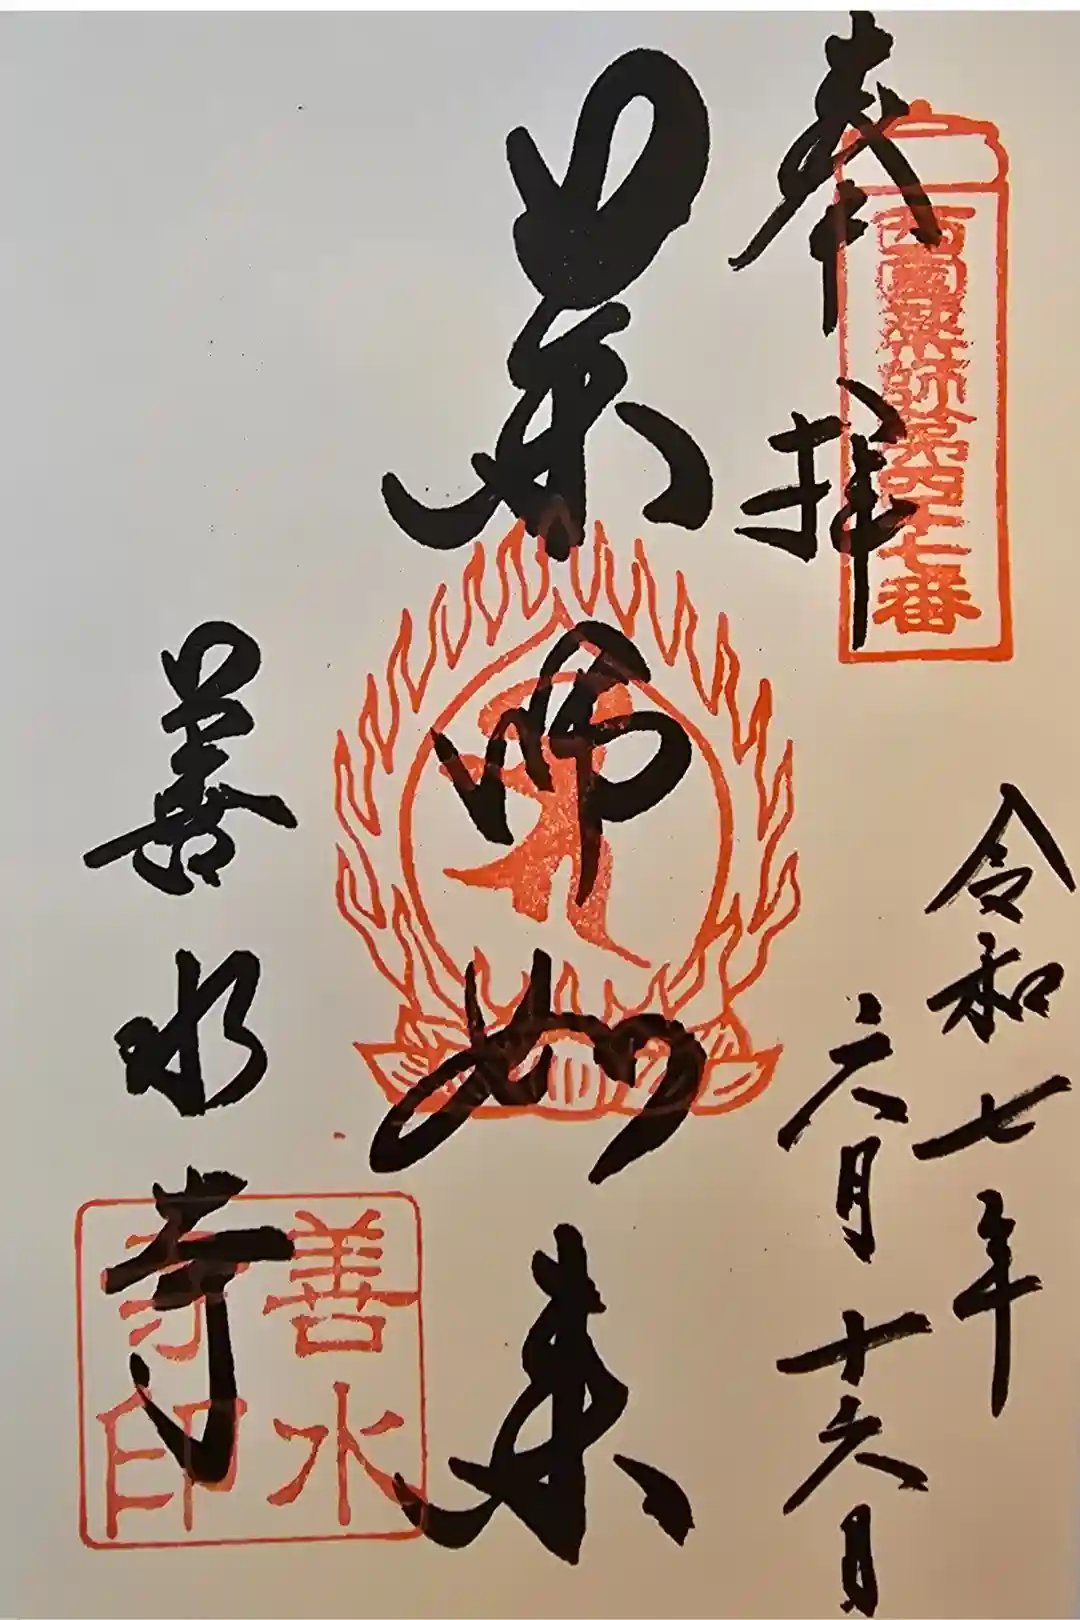 奉拝
西國薬師第四十七番
令和七年
六月十六日
薬師如来
善水寺
善水
寺印